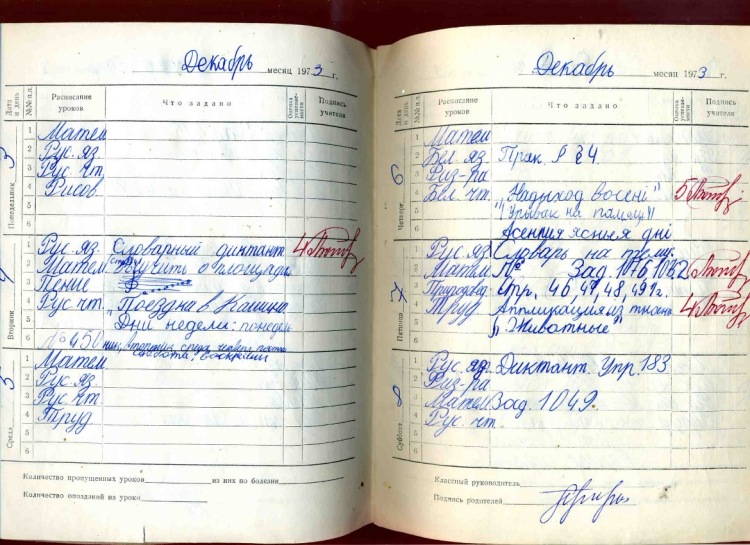 Декабрь месяц 1973 г.
Дата и день №№ п.п. Расписание уроков Что задано Оценка успеваемости Подпись учителя
Понедельник 3
1 Матем
2 Рус. яз.
3 Рус. чт.
4 Рисов
5
6
Вторник
1 Рус. яз. Словарный диктант 4
2 Матем. Выучить о площади
3 Пение
4 Рус. чт. "Поездка в Кашино"
5 Дни недели: понедел
6 № 450 ник, вторник, среда, четверг, пятн
суббота, воскресен
Среда 5
1 Матем
2 Рус. яз.
3 Рус. чт.
4 Труд
5
6
Количество пропущенных уроков из них по болезни
Количество опозданий на уроки
Декабрь месяц 1973 г.
Дата и день №№ п.п. Расписание уроков Что задано Оценка успеваемости Подпись учителя
Четверг 6
1 Матем
2 Бел. яз. Прак. § 24.
3 Физ-ра
4 Бел. чт. "Надыход восені" 5
5 "(Урывак на памяць)"
6 Асеннія ясныя дні
Пятница 7
1 Рус. яз. Словарь на тему
2 Матем Зад. 1046, 1052
3 Природовед. Стр. 46, 47, 48, 49
4 Труд Аппликация из ткани 4
5 "Животные"
6
Суббота 8
1 Рус. яз. Диктант. Упр. 183
2 Физ-ра
3 Матем Зад. 1049.
4 Рус. чт.
5
6
Классный руководитель
Подпись родителей